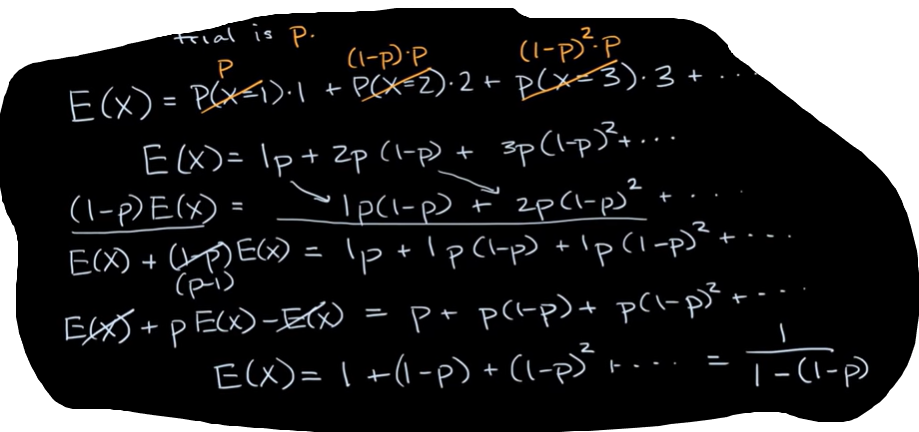 trial is p.
p (1-p)·p (1-p)²·p
E(X) = P(X=1)·1 + P(X=2)·2 + P(X=3)·3 + ...
E(X) = 1p + 2p(1-p) + 3p(1-p)² + ...
(1-p)E(X) = 1p(1-p) + 2p(1-p)² + ...
E(X) + (1-p)E(X) = 1p + 1p(1-p) + 1p(1-p)² + ...
(p-1)
E(X) + pE(X) - E(X) = p + p(1-p) + p(1-p)² + ...
E(X) = 1 + (1-p) + (1-p)² + .... = 1/(1-(1-p))